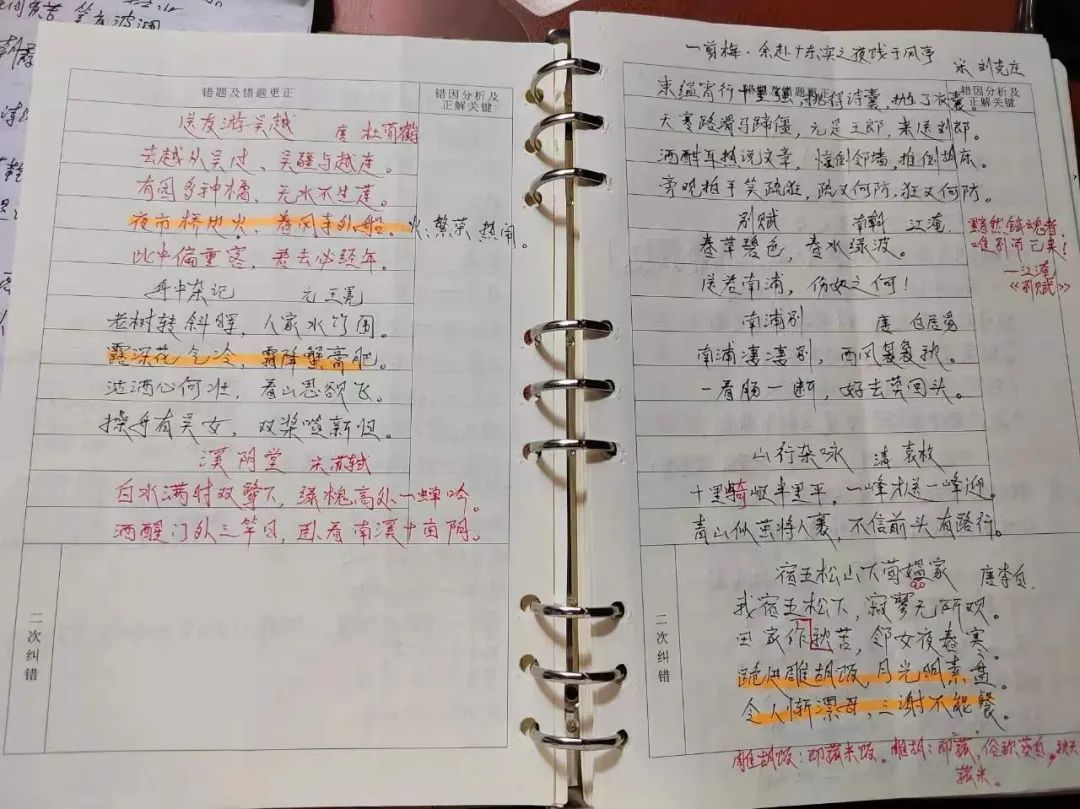 错题及错题更正
错因分析及
正解关键
送友游吴越 唐 杜荀鹤
去越从吴过、吴疆与越连。
有园多种橘、无水不生莲。
夜市桥边火、春风寺外船。
火：繁荣 热闹。
此中偏重客、君去必经年。
舟中杂记 元 王冕
老树转斜晖，人家水竹围。
露深花气冷，霜降蟹膏肥。
沽酒心何壮，看山思欲飞。
操舟有吴女，双桨唱新归。
溪阴堂 宋苏轼
白水满时双鹭下，绿槐高处一蝉吟。
酒醒门外三竿日，看南溪十亩阴。
二次纠错
一剪梅·余赴广东实之夜饯于风亭
宋 刘克庄
错因分析及
正解关键
束缊宵行十里强，挑得诗囊，抛了衣囊。
天寒路滑马蹄僵，元是王郎，来送刘郎。
酒酣耳热说文章，惊倒邻墙，推倒胡床。
旁观拍手笑疏狂，疏又何防，狂又何防。
别赋 南朝 江淹
春草碧色，春水绿波。
送君南浦，伤如之何！
黯然销魂者
唯别而已矣！
—江淹
《别赋》
南浦别 唐 白居易
南浦凄凄别，西风袅袅秋。
一看肠一断，好去莫回头。
山行杂咏 清 袁枚
十里崎岖半里平，一峰才送一峰迎。
青山似茧将人裹，不信前头有路行。
二次纠错
宿五松山下荀媪家 唐李白
我宿五松下，寂寥无所欢。
田家作秋苦，邻女夜舂寒。
跪进雕胡饭，月光明素盘。
令人惭漂母，三谢不能餐。
雕胡饭：即菰米饭。雕胡：即菰，俗称茭白，秋天
菰米。